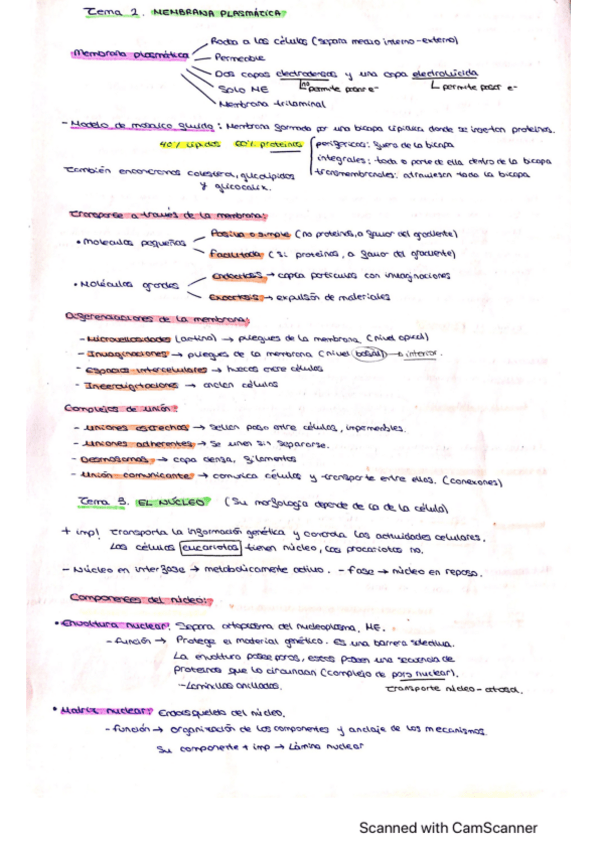 Tema 2. MEMBRANA PLASMÁTICA
Membrana plasmática
Rodea a las células (separa medio interno-externo)
Permeable
Dos capas electrodensas y una capa electrolúcida
no permite pasar e-
permite pasar e-
Solo ME
Membrana trilaminal
- Modelo de mosaico fluido: Membrana formada por una bicapa lipídica donde se insertan proteínas.
40% lípidos 60% proteínas
periféricas: fuera de la bicapa
integrales: toda o parte de ella dentro de la bicapa
transmembranales: atraviesan toda la bicapa
También encontramos colesterol, glucolípidos
y glucocalix.
Transporte a través de la membrana:
• Moléculas pequeñas
Pasiva o simple (no proteínas, a favor del gradiente)
Facilitada (sí proteínas, a favor del gradiente)
• Moléculas grandes
Endocitosis → capta partículas con invaginaciones
Exocitosis → expulsión de materiales
Diferenciaciones de la membrana:
- Microvellosidades (actina) → pliegues de la membrana, (nivel apical)
- Invaginaciones → pliegues de la membrana (nivel basal) → interior.
- Espacios intercelulares → huecos entre células
- Interdigitaciones → anclan células
Complejos de unión:
- Uniones estrechas → sellan paso entre células, impermeables.
- Uniones adherentes → Se unen sin separarse.
- Desmosomas → capa densa, filamentos
- Unión comunicante → comunica células y transporte entre ellas. (conexones)
Tema 3. EL NÚCLEO (Su morfología depende de la de la célula)
+ imp! Transporta la información genética y controla las actividades celulares.
Las células eucariotas tienen núcleo, las procariotas no.
- Núcleo en interfase → metabólicamente activo. - fase → núcleo en reposo.
Componentes del núcleo:
• Envoltura nuclear: Separa citoplasma del nucleoplasma, ME.
- función → Protege el material genético. Es una barrera selectiva.
La envoltura posee poros, estos poseen una secuencia de
proteínas que lo circundan (complejo de poro nuclear).
- Laminillas anilladas.
transporte núcleo-citosol.
• Matriz nuclear: Endoesqueleto del núcleo.
- función → organización de los componentes y anclaje de los mecanismos.
Su componente + imp → Lámina nuclear
Scanned with CamScanner